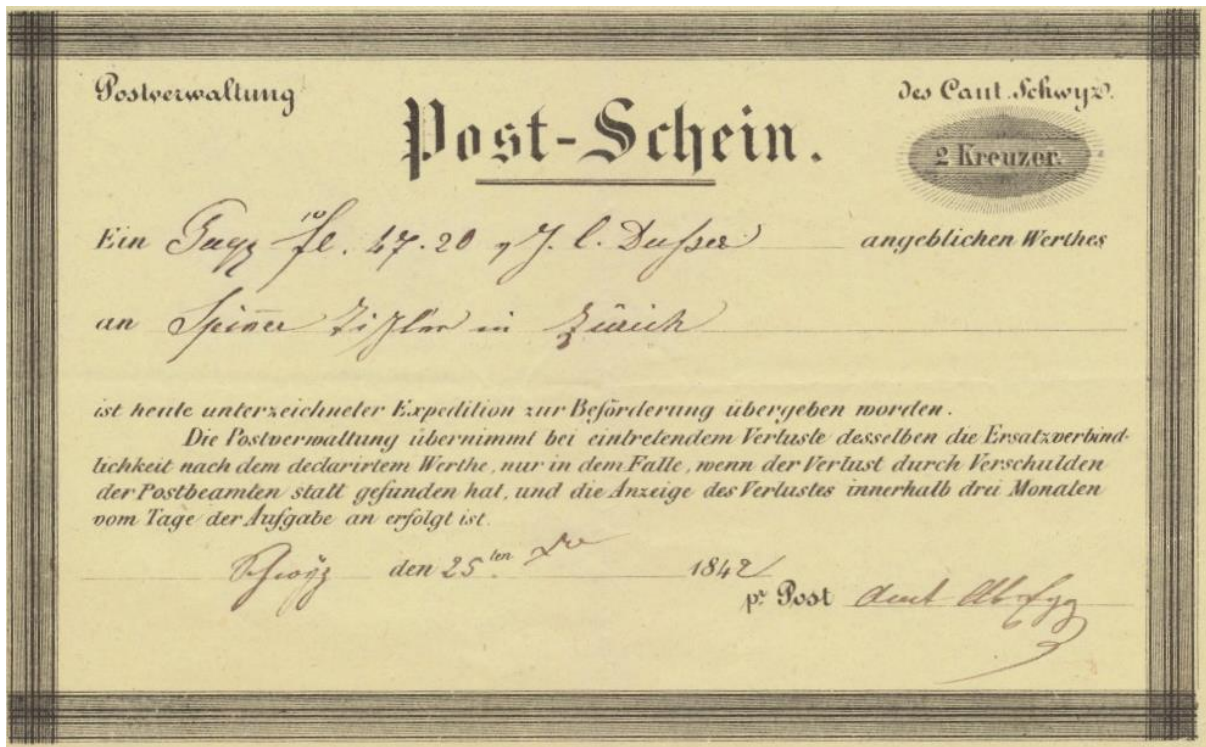 Postverwaltung des Cant. Schwyz.
Post-Schein.
2 Kreuzer.
Ein fl. 47.20 J. C. angeblichen Werthes
an Spiner in Zürich
ist heute unterzeichneter Expedition zur Beförderung übergeben worden.
Die Postverwaltung übernimmt bei eintretendem Verluste desselben die Ersatzverbind-
lichkeit nach dem declarirtem Werthe, nur in dem Falle, wenn der Verlust durch Verschulden
der Postbeamten statt gefunden hat, und die Anzeige des Verlustes innerhalb drei Monaten
vom Tage der Aufgabe an erfolgt ist.
Schwyz den 25ten 1842
pr Post Amt Ab Egg